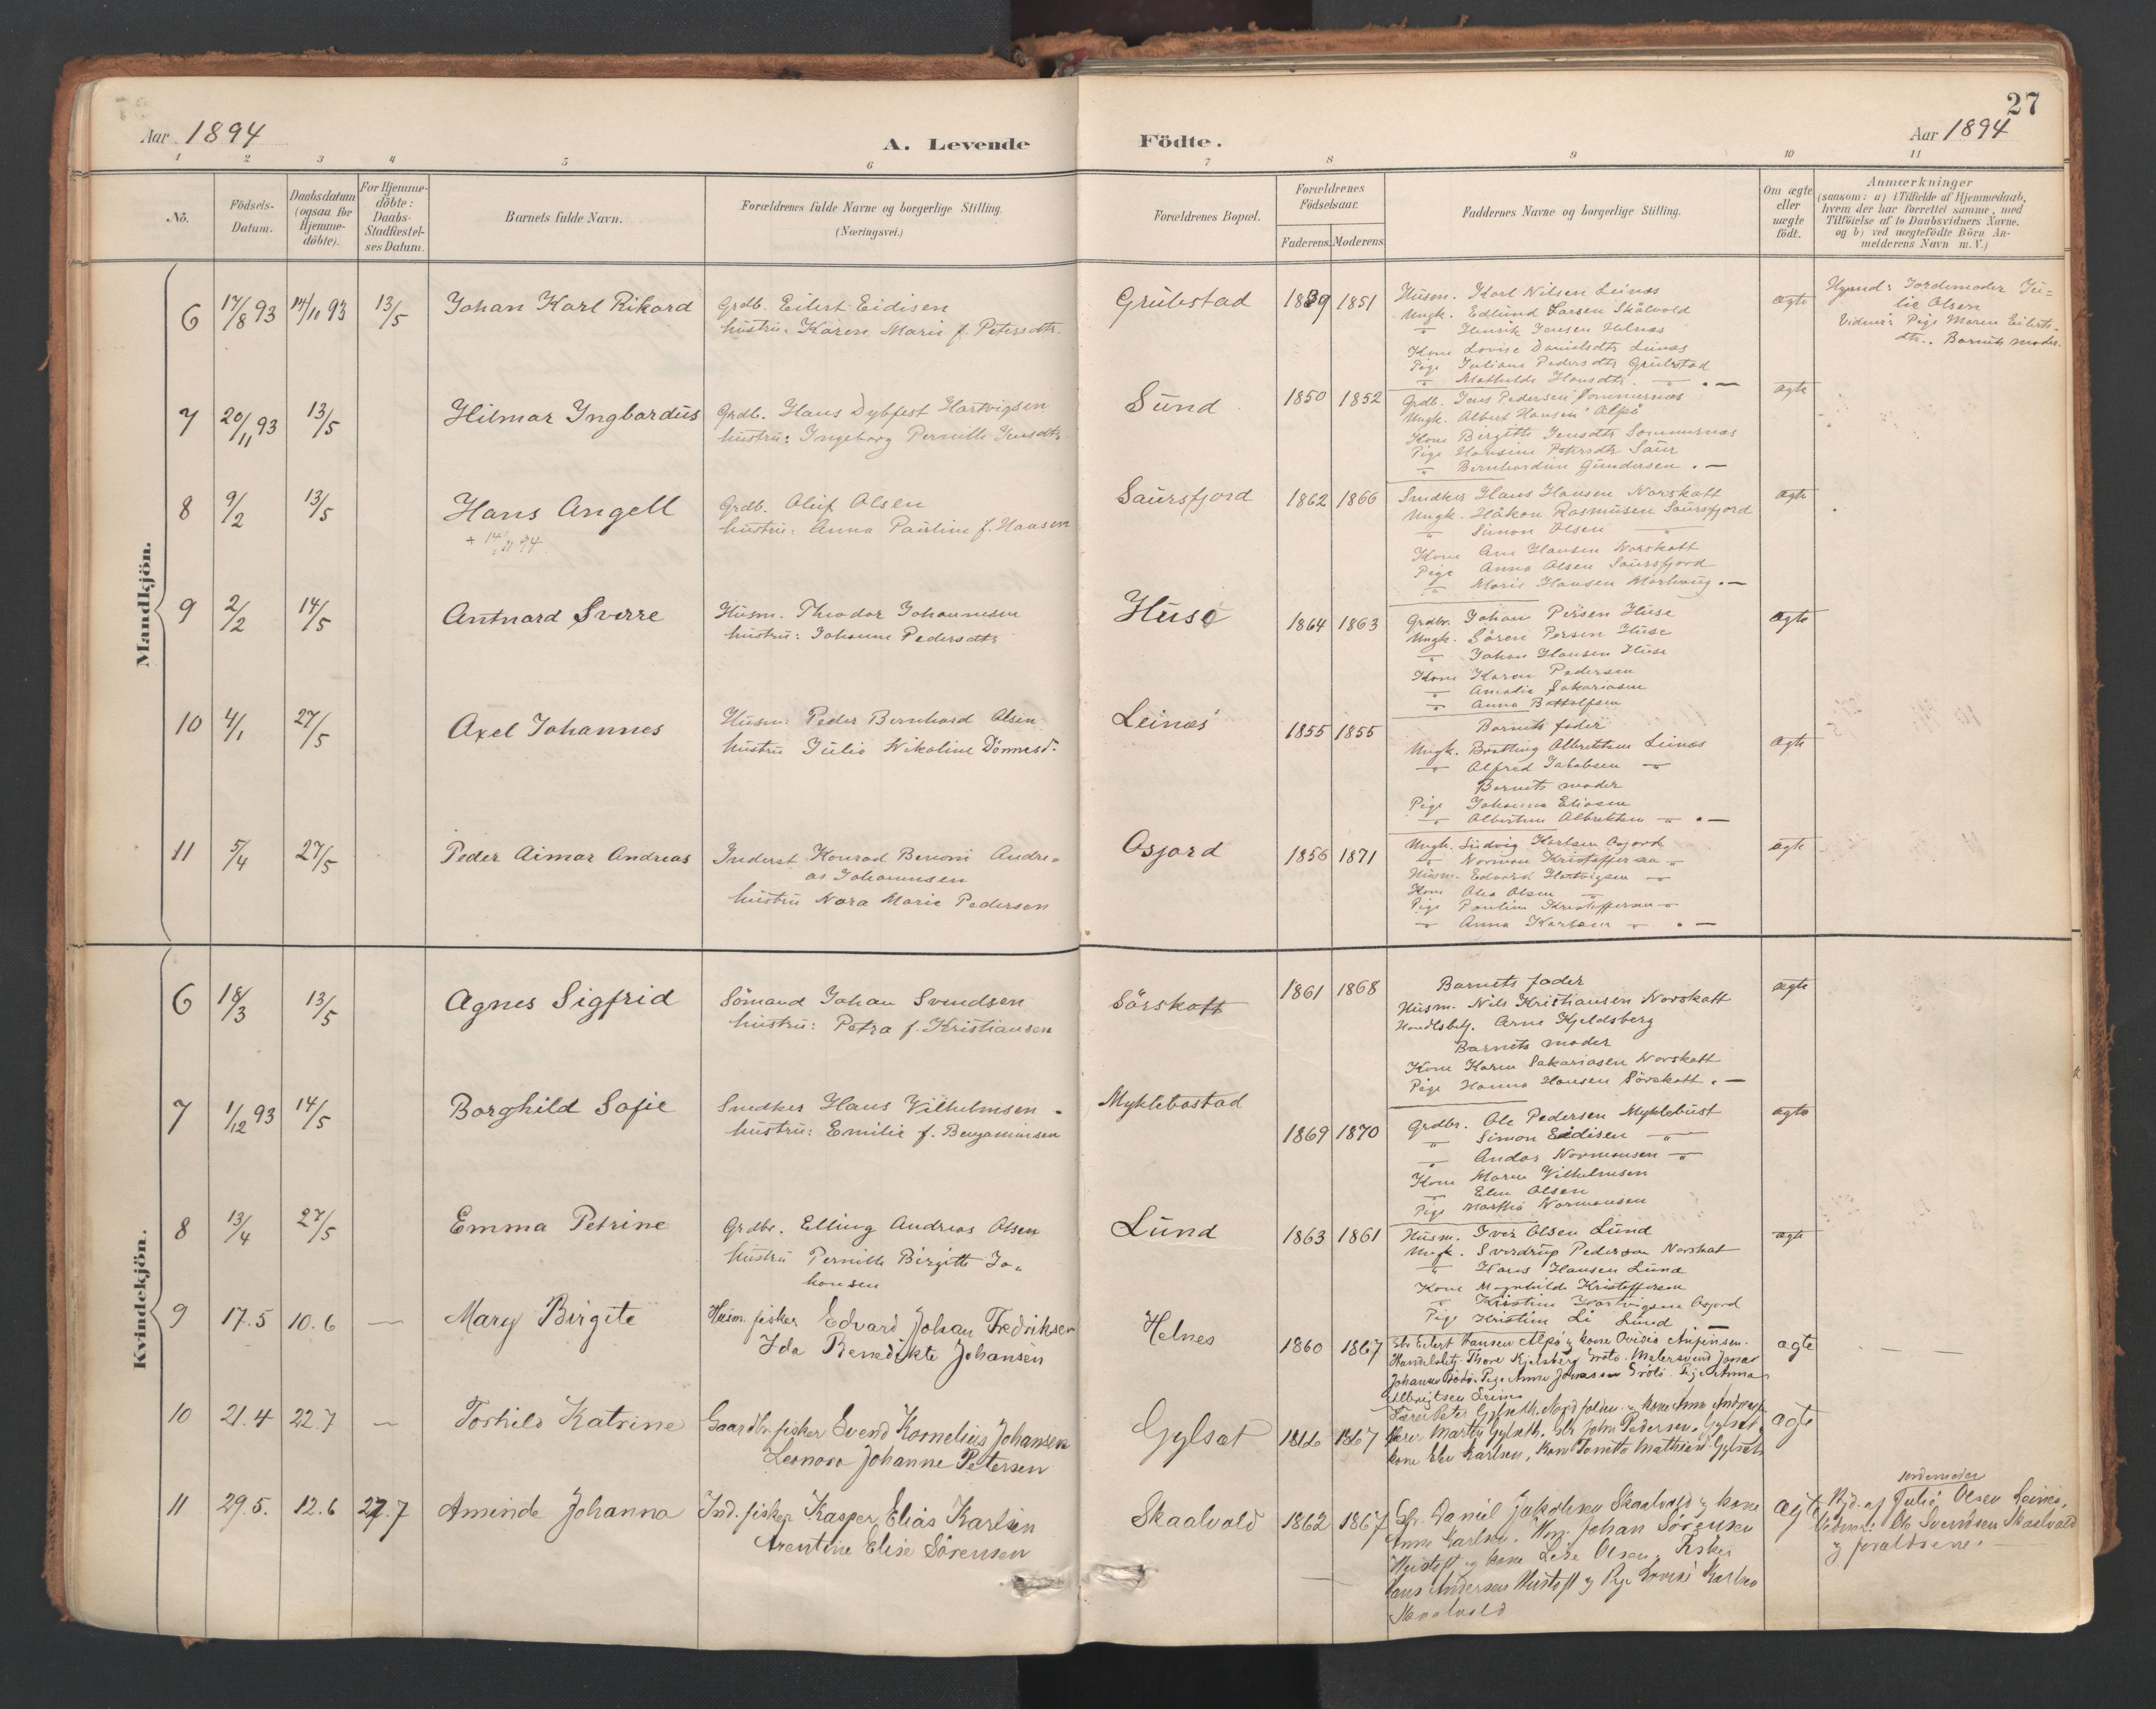 27
Aar 1894
A. Levende Födte.
Aar 1894
1 2 3 4 5 6 7 8 9 10 11
No.
Födsels-Datum.
Daabsdatum (ogsaa for Hjemme-döbte).
For Hjemme-döbte: Daabs-Stadfæstel-ses Datum.
Barnets fulde Navn.
Forældrenes fulde Navne og borgerlige Stilling.
(Næringsvei.)
Forældrenes Bopæl.
Forældrenes Födselsaar.
Faderens. Moderens.
Faddernes Navne og borgerlige Stilling.
Om ægte eller uægte födt.
Anmærkninger
(saasom: a) i Tilfælde af Hjemmedaab,
hvem der har forrettet samme, med
Tilföielse af to Daabsvidners Navne.
og b) ved uægtefödte Börn An-
melderens Navn m.V.)
Mandkjön.
6 17/8 93 14/10 93 13/5 Johan Karl Rikard
Grdb. Eilert Eidisen
hustru: Karen Marie f. Petersdtr.
Grubstad 1839 1851
Husm. Karl Nilsen Leinæs
Ungk. Edlund Larsen Skålvold
" Henrik Jensen Helnæs
Kone Lovise Danielsdtr Leinæs
Pige Juliane Pedersdtr Grubstad
" Mathilde Hansdtr. " . —
ægte
Hjemd: Jordemoder Ju-
lie Olsen
Vidner: Pige Maren Eilerts-
dtr., Barnets moder.
7 20/11 93 13/5 Hilmar Ingbardus
Grdb. Hans Dybfest Hartvigsen
hustru: Ingeborg Pernille Jensdtr
Sund 1850 1852
Grdb. Jens Pedersen Sommernæs
Ungk. Albert Hansen Alpö
Kone Birgitte Jensdtr Sommernæs
Pige Hansine Petersdtr Saur
" Bernhardine Gundersen . —
ægte
8 9/2 13/5 Hans Angell
Grdb. Oluf Olsen
hustru: Anna Pauline f. Hansen
Saursfjord 1862 1866
Snedker Hans Hansen Norskatt
Ungk. Håkon Rasmusen Saursfjord
" Simon Olsen "
Kone Ane Hansen Norskatt
Pige Anna Olsen Saursfjord
" Marie Hansen . —
ægte
9 2/2 14/5 Antnard Sverre
Husm. Theodor Johannesen
hustru: Johanne Pedersdtr
Huse 1864 1863
Grdbr. Johan Persen Huse
Ungk. Sören Persen Huse
" Johan Hansen Huse
Kone Karen Pedersen
" Amalie Sakariasen
" Anna Bottolfsen
ægte
10 4/1 27/5 Axel Johannes
Husm: Peder Bernhard Olsen
hustru Julie Nikoline Dönnesd.
Leinæs 1855 1855
Barnets fader
Ungk. Brotting Albrektsen Leinæs
" Alfred Jakobsen "
Barnets moder
Pige Johanna Eliasen
" Albertine Albrektsen " . —
ægte
11 5/4 27/5 Peder Aimar Andreas
Inderst Konrad Benoni Andre-
as Johannesen
hustru Nora Marie Pedersen
Osjord 1856 1871
Ungk. Ludvig Karlsen Osjord
" Norman Kristoffersen "
Husm. Edvard Hartvigsen "
Kone Olea Olsen "
Pige Pauline Kristoffersen "
" Anna Karlsen " . —
ægte
Kvindekjön.
6 18/3 13/5 Agnes Sigfrid
Sömand Johan Svendsen
hustru: Petra f. Kristiansen
Sörskatt 1861 1868
Barnets fader
Husm. Nils Kristiansen Norskatt
Handlsbtj. Arne Kjeldsberg
Barnets moder
Kone Karen Sakariasen Norskatt
Pige Hanna Hansen Sörskatt . —
ægte
7 1/12 93 14/5 Borghild Sofie
Snedker Hans Vilhelmsen
hustru: Emilie f. Benjaminsen
Myklebostad 1869 1870
Grdbr. Ole Pedersen Myklebust
" Simon Eidisen "
" Andor Normansen "
Kone Maren Vilhelmsen
" Elen Olsen
Pige Martha Normansen
ægte
8 13/4 27/5 Emma Petrine
Grdbr. Elling Andreas Olsen
hustru Pernille Birgitte Jo-
hansen
Lund 1863 1861
Husm. Iver Olsen Lund
Ungk. Sverdrup Pedersen Norskat
" Hans Hansen Lund
Kone Magnhilde Kristoffersen
" Kristine Hartvigsen Osjord
Pige Kristine Li Lund
ægte
9 17.5 10.6 — Mary Birgite
Husm. fisker Edvard Johan Fredriksen
Ida Benedikte Johansen
Helnes 1860 1867
Gbr Eilert Hansen Alpö og kone Ovidia Anfinsen.
Handelsbetj. Thore Kjelsberg Gröto. Malersvend Jonas
Johansen Bodö. Pige Anne Jonassen Gröto. Pige Anna
Albrigtsen
ægte — —
10 21.4 22.7 — Torhild Katrine
Gaardbr. fisker Svend Kornelius Johansen
Leonora Johanne Petersen
Gylset 1866 1867
Lærer Peter Gylseth. Nordfolden og kone Anna
Martin Gylseth. Gbr John Pedersen, Gylset og
kone Karlsen, Kone Mathisen Gylset
ægte
11 29.5. 12.6 27.7 Aminda Johanna
Ind. fisker Kasper Elias Karlsen
Arentine Elise Sörensen
Skaalvold 1862 1867
Gbr. Daniel Jakobsen Skaalvold og kone
Anne Karlsen. Johan Sörensen
og kone Lise Olsen. Fisker
Hans Andersen og Pige Lovise Karlsen
Skaalvold
ægte
jordemoder
Hjd. af Julie Olsen Leines.
Vidner: Ole Svendsen Skaalvold
og forældrene. —